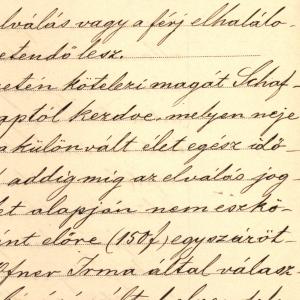 elválás vagy a férj elhalálo-
etendő lesz.
etén kötelezi magát Schaf-
aptól kezdve, melyen neje
a különvált élet egész idő-
addig mig az elválás jog-
et alapján nem eszkö-
nt előre (150 f) egyszázöt-
ffner Irma által válasz-